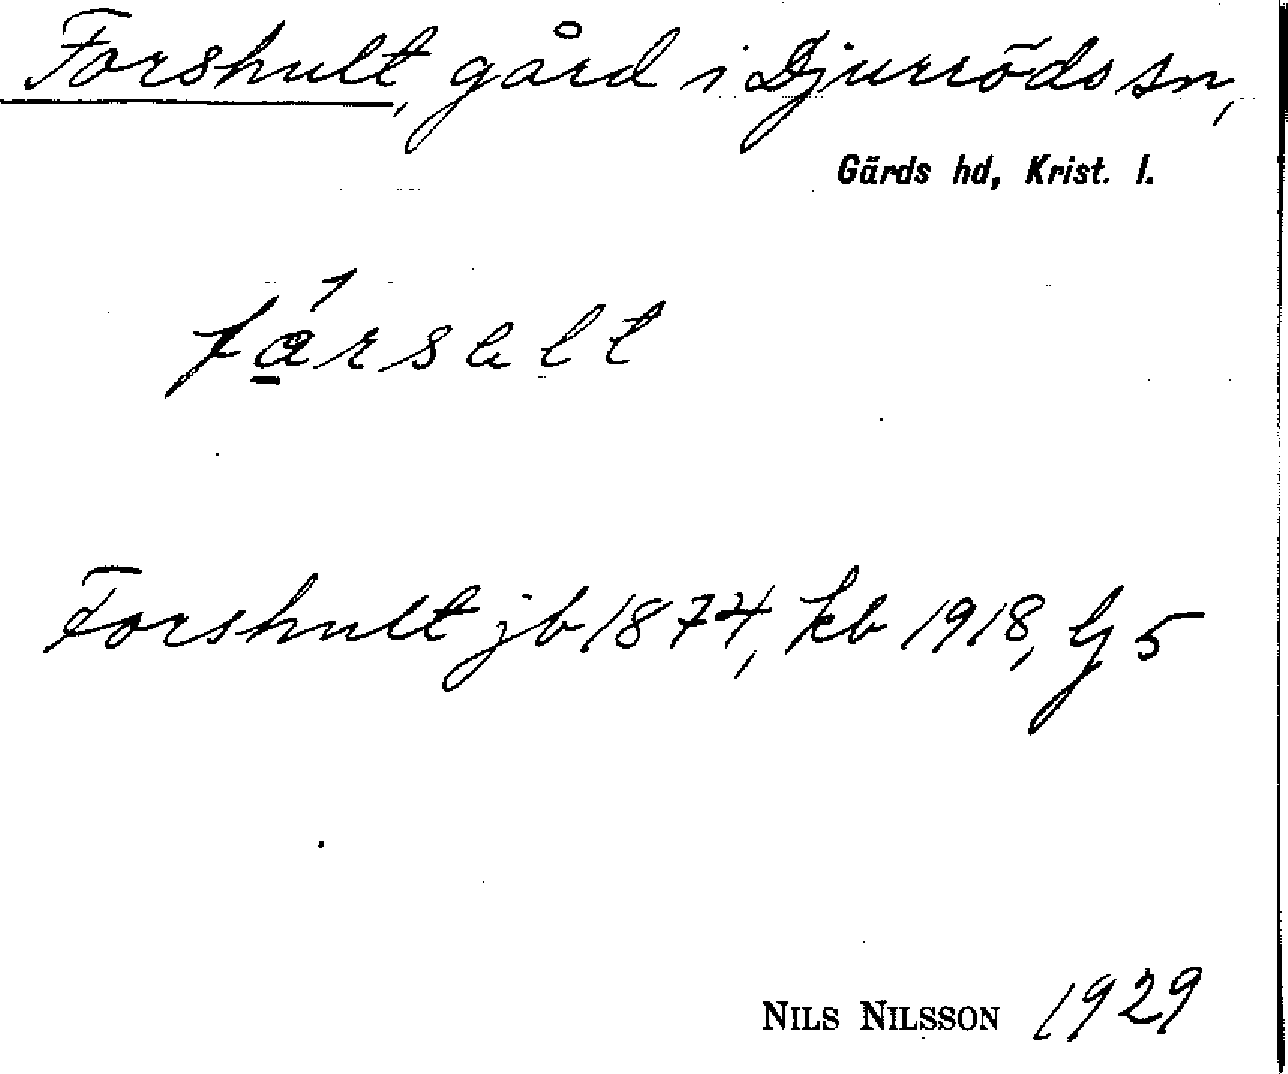 Forshult, gård i Djurröds sn,
Gärds hd, Krist. l.
fársalt
Forshult jb 1874, kb 1918, G 5
NILS NILSSON 1929